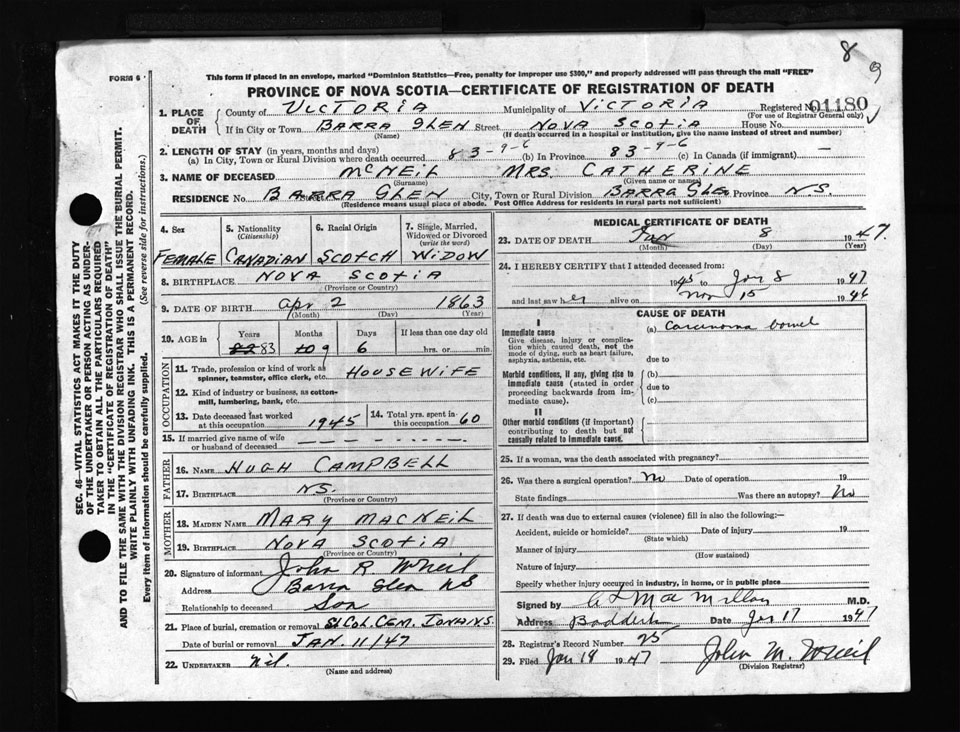 8
9
FORM 6
This form if placed in an envelope, marked "Dominion Statistics—Free, penalty for improper use $300," and properly addressed will pass through the mail "FREE"
PROVINCE OF NOVA SCOTIA—CERTIFICATE OF REGISTRATION OF DEATH
1. PLACE OF DEATH County of VICTORIA Municipality of VICTORIA Registered No. 01180
(For use of Registrar General only)
If in City or Town BARRA GLEN Street NOVA SCOTIA House No.
(Name) (If death occurred in a hospital or institution, give the name instead of street and number)
2. LENGTH OF STAY (in years, months and days)
(a) In City, Town or Rural Division where death occurred 83-9-6 (b) In Province 83-9-6 (c) In Canada (if immigrant) —
3. NAME OF DECEASED McNEIL MRS. CATHERINE
(Surname) (Given name or names)
RESIDENCE No. BARRA GLEN City, Town or Rural Division BARRA GLEN Province NS.
(Residence means usual place of abode. Post Office Address for residents in rural parts not sufficient)
4. Sex 5. Nationality (Citizenship) 6. Racial Origin 7. Single, Married, Widowed or Divorced (write the word)
FEMALE CANADIAN SCOTCH WIDOW
8. BIRTHPLACE NOVA SCOTIA
(Province or Country)
9. DATE OF BIRTH Apr 2 1863
(Month) (Day) (Year)
10. AGE in Years Months Days If less than one day old
82 83 10 9 6 hrs. or min.
OCCUPATION
11. Trade, profession or kind of work as spinner, teamster, office clerk, etc. HOUSEWIFE
12. Kind of industry or business, as cotton-mill, lumbering, bank, etc.
13. Date deceased last worked at this occupation 1945 14. Total yrs. spent in this occupation 60
15. If married give name of wife or husband of deceased
FATHER
16. NAME HUGH CAMPBELL
17. BIRTHPLACE NS.
(Province or Country)
MOTHER
18. MAIDEN NAME MARY MACNEIL
19. BIRTHPLACE NOVA SCOTIA
(Province or Country)
20. Signature of informant John R McNeil
Address Barra Glen NS
Relationship to deceased Son
21. Place of burial, cremation or removal St Col. CEM. IONA N.S.
Date of burial or removal JAN. 11/47
22. UNDERTAKER Nil.
(Name and address)
MEDICAL CERTIFICATE OF DEATH
23. DATE OF DEATH Jan 8 1947.
(Month) (Day) (Year)
24. I HEREBY CERTIFY that I attended deceased from:
1945 to Jan 8 1947
and last saw her alive on Nov 15 1946
CAUSE OF DEATH
I
Immediate cause (a) Carcinoma bowel
Give disease, injury or complication which caused death, not the mode of dying, such as heart failure, asphyxia, asthenia, etc. due to
Morbid conditions, if any, giving rise to immediate cause (stated in order proceeding backwards from immediate cause). (b) due to (c)
II
Other morbid conditions (if important) contributing to death but not causally related to immediate cause.
25. If a woman, was the death associated with pregnancy?
26. Was there a surgical operation? No Date of operation 19
State findings Was there an autopsy? No
27. If death was due to external causes (violence) fill in also the following:—
Accident, suicide or homicide? Date of injury 19
(State which)
Manner of injury
(How sustained)
Nature of injury
Specify whether injury occurred in industry, in home, or in public place
Signed by MacMillan M.D.
Address Baddeck Date Jan 17 1947
28. Registrar's Record Number 25
29. Filed Jan 18 1947 John M. McNeil
(Division Registrar)
SEC. 46—VITAL STATISTICS ACT MAKES IT THE DUTY
OF THE UNDERTAKER OR PERSON ACTING AS UNDER-
TAKER TO OBTAIN ALL THE PARTICULARS REQUIRED
IN THE "CERTIFICATE OF REGISTRATION OF DEATH"
AND TO FILE THE SAME WITH THE DIVISION REGISTRAR WHO SHALL ISSUE THE BURIAL PERMIT.
WRITE PLAINLY WITH UNFADING INK. THIS IS A PERMANENT RECORD.
Every item of information should be carefully supplied. (See reverse side for instructions.)